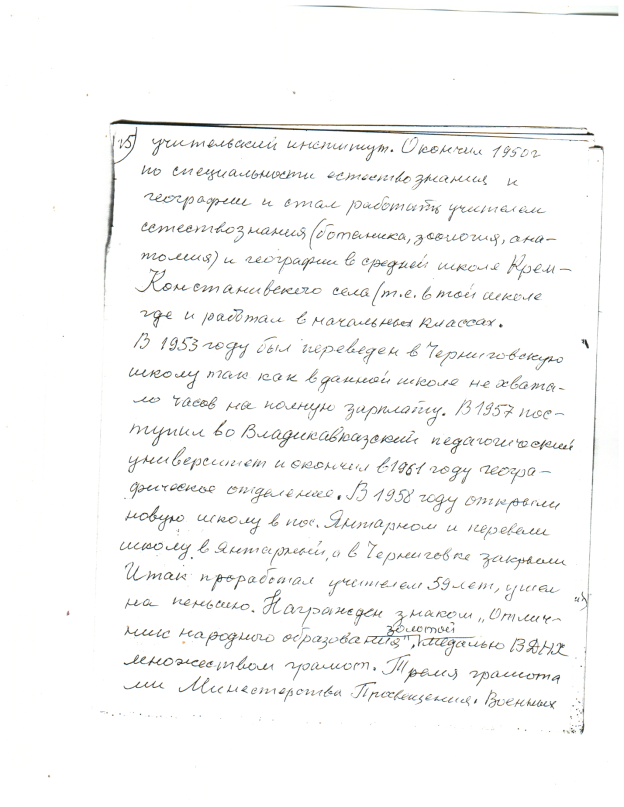 25) учительский институт. Окончил 1950г
по специальности естествознания и
географии и стал работать учителем
естествознания (ботаника, зоология, ана-
томия) и географии в средней школе Крем-
Констанивского села (т.е. в той школе
где и работал в начальных классах.
В 1953 году был переведен в Черниговскую
школу так как в данной школе не хвата-
ло часов на полную зарплату. В 1957 пос-
тупил во Владикавказский педагогический
университет и окончил в 1961 году геогра-
фическое отделение. В 1958 году открыли
новую школу в пос. Янтарном и перевели
школу в Янтарный, а в Черниговке закрыли
Итак проработал учителем 39 лет, ушел
на пенсию. Награжден знаком „Отлич-
золотой
ник народного образования", медалью ВДНХ
множеством грамот. Тремя грамота
ми Министерства Просвещения. Военных